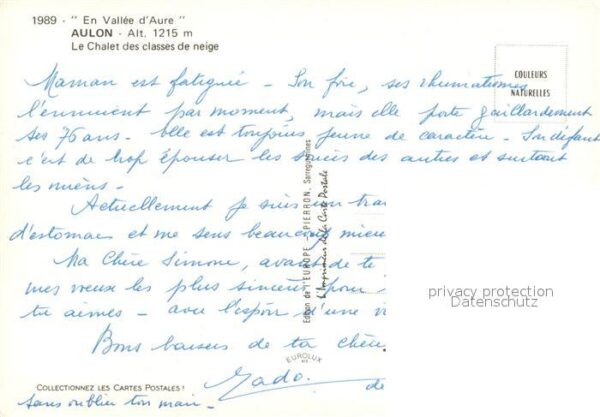 1989 - " En Vallée d'Aure "
AULON - Alt. 1215 m
Le Chalet des classes de neige
COULEURS
NATURELLES
Maman est fatiguée - Son foie, ses rhumatismes
l'ennuient par moment, mais elle porte gaillardement
ses 76 ans. Elle est toujours jeune de caractère. Son défaut
c'est de trop épouser les soucis des autres et surtout
les miens -
Actuellement je suis un trai
d'estomac et me sens beaucoup mieu
Ma Chère Simone, avant de te
mes vœux les plus sincères pour
tu aimes - avec l'espoir d'une
Bons baisers de ta chère
Zado. de
sans oublier ton mari -
Edition de l'EUROPE - PIERRON, Sarreguemines
L'Imprimeur de la Carte Postale
EUROLUX
COLLECTIONNEZ LES CARTES POSTALES !
privacy protection
Datenschutz